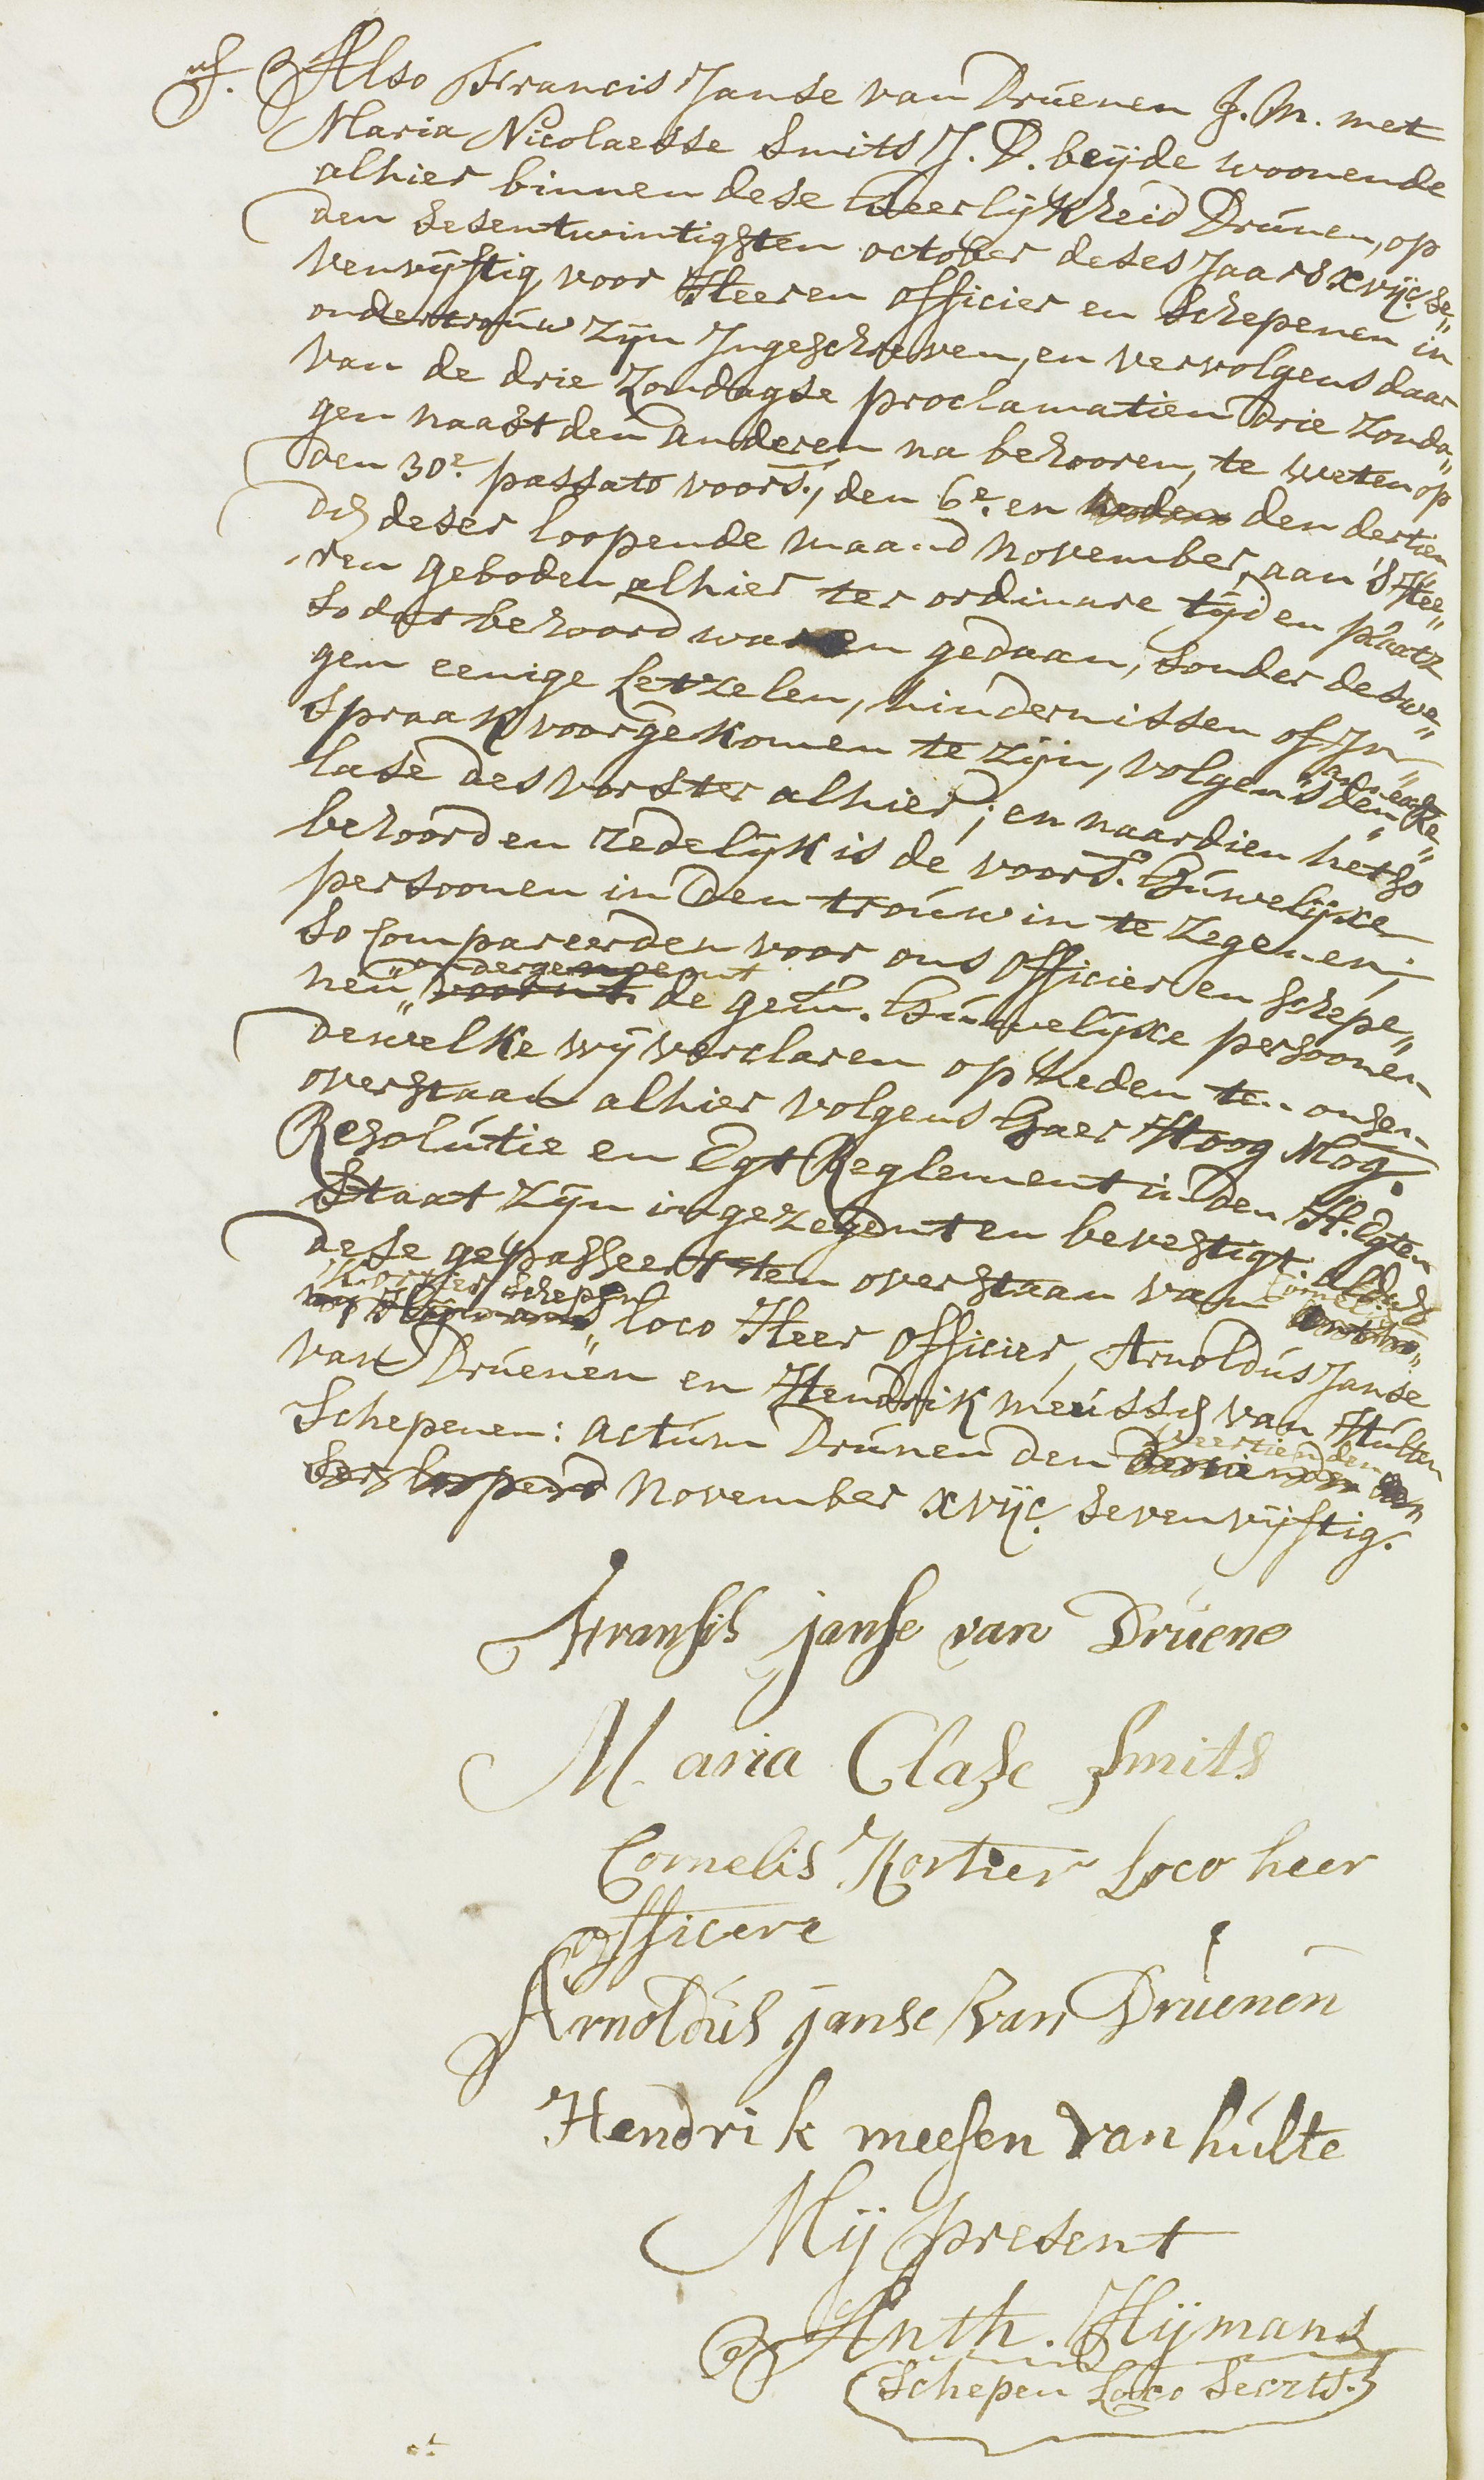 Also Francis Janse van Drúenen J. M. met
Maria Nicolaesse Smits J. D. beÿde woonende
alhier binnen dese Heerlÿkheid Drúnen, op
den sesentwintigsten october deses Jaars xvijc. se„
venvÿftig, voor Heeren officier en Schepenen in
ondertroúw zÿn Jngeschreven, en vervolgens daar
van de drie Zondagse proclamatien drie Zonda„
gen naast den anderen na behooren, te weten op
den 30e. passato voors., den 6e. en heden den dertien
dn deser loopende maand November, aan 's Hee„
ren geboden alhier ter ordinare tÿd en plaatz
so dat behoord waren gedaan, sonder deswe„
gen eenige letzelen, hindernissen of Jn„
spraak voorgekomen te zÿn, volgens den Re„
lase des vorster alhier; en naardien het so
behoord en redelÿk is de voors. Húwelÿxe
persoonen in den troúw in te zegenen;
So Compareerden voor ons officier en schepe„
ondergenoemt
nen„ voornt. de gem. Húwelÿxe persoonen
dewelke wÿ verclaren op heden ten onsen
overstaan alhier volgens Haer Hoog Mog.
Resolútie en Egt Reglement in den H. Egten
Staat zÿn ingezegent en bevestigt. aldús
dese gepasseert ten overstaan van Cornelis
Kortier schepen
loco Heer officier, Arnoldús Janse
van Drúenen en Hendrik meússn van Húlten
Schepenen: actúm Drúnen den veertienden
November xvijc. sevenvÿftig.
Fransis janse van Drúene
Maria Clase Smits
Cornelis Kortier Loco heer
officiere
Arnoldús janse van Drúenen
Hendrik meesen van húlte
Mÿ present
Anth. Hÿmans
Schepen Loco Secrts.